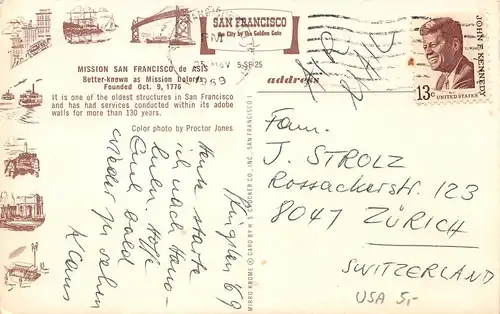 SAN FRANCISCO
The City by the Golden Gate
PM
1969
MISSION SAN FRANCISCO de ASIS
Better-known as Mission Dolores
Founded Oct. 9, 1776
It is one of the oldest structures in San Francisco
and has had services conducted within its adobe
walls for more than 130 years.
Color photo by Proctor Jones
address
AIR
MAIL
JOHN F. KENNEDY
13c
UNITED STATES
Pfingsten 69
Heute starte
ich nach Hono-
lulu. Hoffe
Euch bald
wieder zu sehen
Klaus
MIRRO KROME ® CARD BY H. S. CROCKER CO., INC., SAN FRANCISCO 1
Fam.
J. STROLZ
Rossackerstr. 123
8047 ZÜRICH
SWITZERLAND
USA 5,-